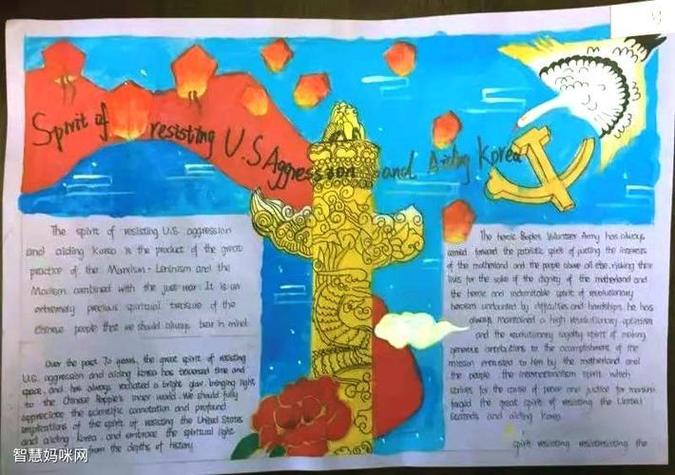 Spirit of resisting U.S Aggression and Aiding Korea
The spirit of resisting U.S. aggression
and aiding Korea is the product of the great
practice of the Marxism-Leninism and the
Maoism combined with the just war. It is an
extremely precious spiritual treasure of the
Chinese people that we should always bear in mind.
Over the past 70 years, the great spirit of resisting
U.S. aggression and aiding Korea has traversed time and
space, and has always radiated a bright glow, bringing light
to the Chinese People's inner world. We should fully
appreciate the scientific connotation and profound
implications of the spirit of resisting the United States
and aiding Korea, and embrace the spiritual light
from the depths of history.
The heroic People's Volunteer Army has always
carried forward the patriotic spirit of putting the interests
of the motherland and the people above all else, risking their
lives for the sake of the dignity of the motherland and
the heroic and indomitable spirit of revolutionary
heroism undaunted by difficulties and hardships. he has
always maintained a high revolutionary optimism
and the revolutionary loyalty spirit of making
generous contributions to the accomplishment of the
mission entrusted to him by the motherland and
the people. the internationalism spirit which
strives for the cause of peace and justice for mankind
the great spirit of resisting the United
and aiding Korea
spirit resisting the
智慧妈咪网